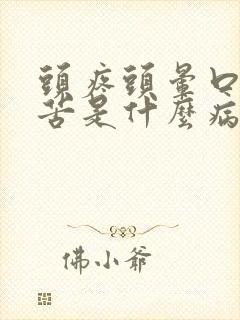 頭疼頭暈口
苦是什麼病
佛小爺